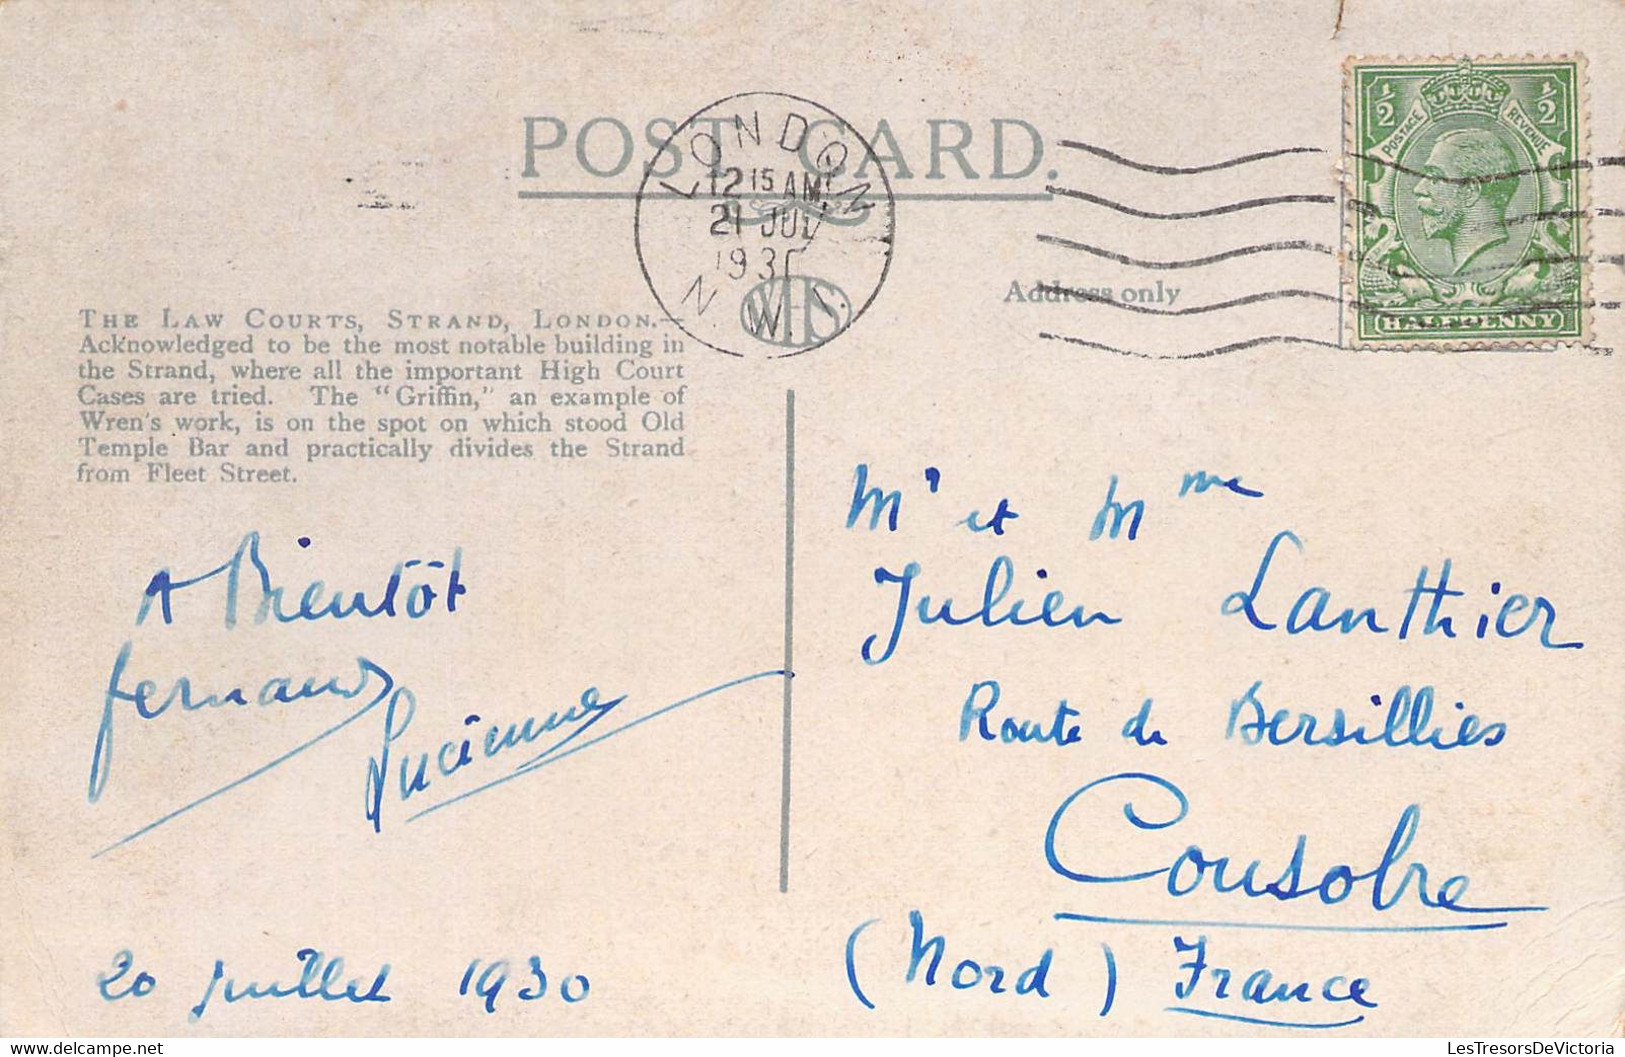 POST CARD.
LONDON
12 15 AM
21 JUL
N.W.1.
WHS
½ ½
POSTAGE REVENUE
HALFPENNY
Address only
THE LAW COURTS, STRAND, LONDON.—
Acknowledged to be the most notable building in
the Strand, where all the important High Court
Cases are tried. The "Griffin," an example of
Wren's work, is on the spot on which stood Old
Temple Bar and practically divides the Strand
from Fleet Street.
A Bientôt
fernand
Lucienne
20 juillet 1930
Mr et Mme
Julien Lanthier
Route de Bersillies
Cousolre
(Nord) France
Fermer
LesTresorsDeVictoria